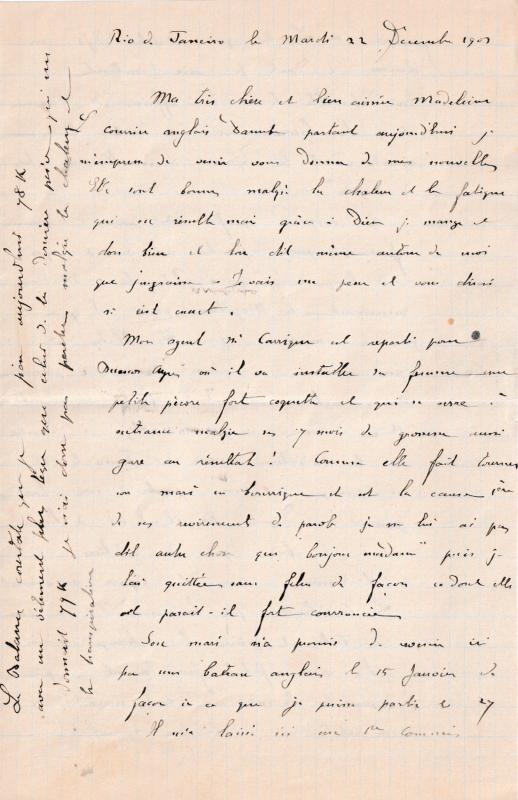 Rio de Janeiro le Mardi 22 Decembre 190
Ma très chère et bien aimée Madeleine
Courrier anglais Danube partant aujourd'hui je
m'empresse de venir vous donner de mes nouvelles
Elles sont bonnes malgré la chaleur et la fatigue
qui en résulte mais grâce à Dieu je mange et
dors bien et l'on dit même autour de moi
que j'engraisse - Je vais me peser et vous dirai
si c'est exact.
Mon agent Mr Carrique est reparti pour
Buenos Ayres où il va installer sa femme une
petite pécore fort coquette et qui se serre à
outrance malgré ses 7 mois de grossesse aussi
gare au résultat! Comme elle fait tourner
son mari en bourrique et est la cause 1ère
de ses revirements de parole je ne lui ai pas
dit autre chose que "bonjour madame" puis je
l'ai quittée sans plus de façon ce dont elle
est parait-il fort courroucée
Son mari m'a promis de revenir ici
par un bateau anglais le 15 Janvier de
façon à ce que je puisse partir le 27
Il m'a laissé ici un 1er Commis
La Balance constate que je pèse aujourd'hui 78 K
avec un vêtement plus léger que celui de la dernière pesée qui me
donnait 77 K je n'ai donc pas perdu malgré la chaleur et
la transpiration